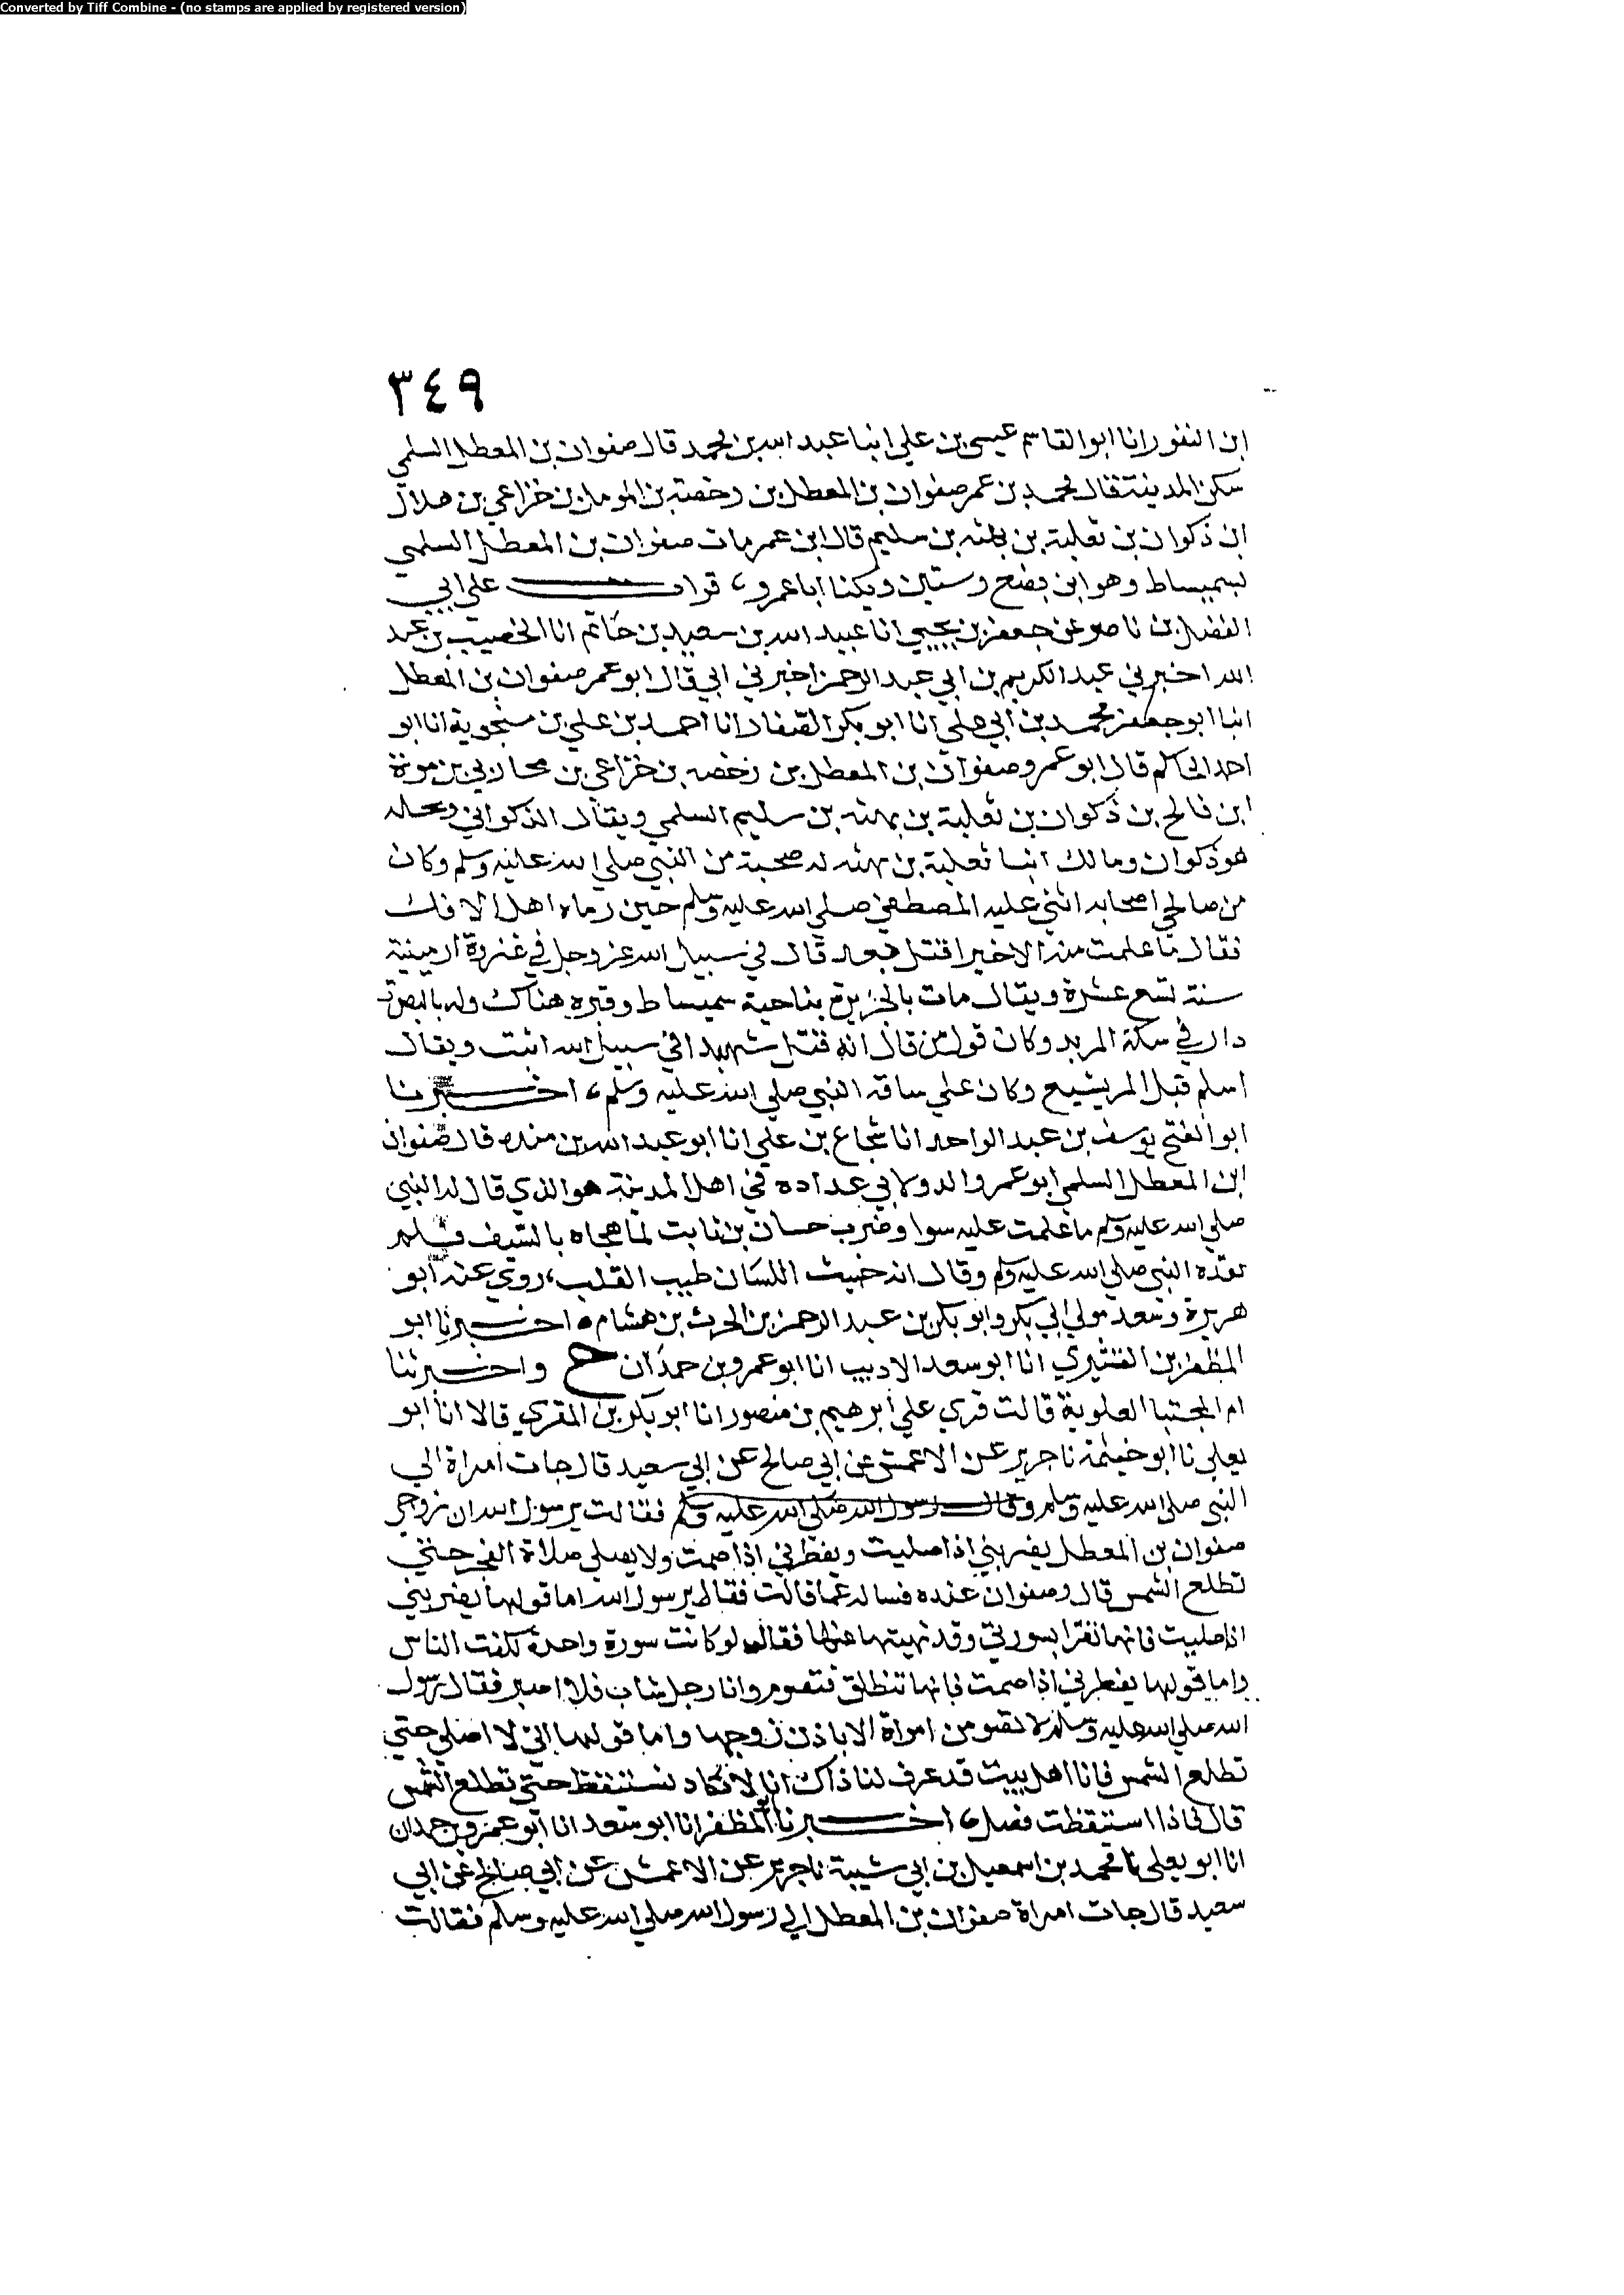 Converted by Tiff Combine - (no stamps are applied by registered version)
٣٤٩
ابن النقور انا ابو القاسم عيسى بن علي انبا عبد الله بن محمد قال صفوان بن المعطل السلمي
سكن المدينة قال محمد بن عمر صفوان بن المعطل بن رخصة بن المومل بن خزاعي بن هلال
ابن ذكوان بن ثعلبة بن بهثه بن سليم قال ابن عمر مات صفوان بن المعطل السلمي
بسميساط وهو ابن بضع وستين ويكنا ابا عمرو، قرات علي ابي
الفضل بن ناصر عن جعفر بن يحيي انا عبيد الله بن سعيد بن حاتم انا الخصيب بن عبد
الله اخبرني عبد الكريم بن ابي عبد الرحمن اخبرني ابي قال ابو عمر صفوان بن المعطل
انبا ابو جعفر محمد بن ابي علي انا ابو بكر الصفار انا احمد بن علي بن منجوية انا ابو
احمد الحاكم قال ابو عمرو صفوان بن المعطل بن رخصه بن خزاعي بن محاربي بن مرة
ابن فالح بن ذكوان بن ثعلبة بن بهثه بن سليم السلمي ويقال الذكواني
هو ذكوان ومالك ابنا ثعلبة بن بهثه له صحبة من النبي صلي الله عليه وسلم وكان
من صالحي اصحابه اثني عليه المصطفي صلي الله عليه وسلم حين رماه اهل الافك
فقال ما علمت منه الا خيرا قتل بعد قال في سبيل الله عز وجل في غزوة ارمينية
سنة تسع عشرة ويقال مات بالجزيرة بناحية سميساط وقبره هناك وله بالبصرة
دار في سكة المربد وكان قول من قال انه قتل شهيدا في سبيل الله اثبت ويقال
اسلم قبل المريسيع وكان علي ساقة النبي صلي الله عليه وسلم، اخبرنا
ابو الفتح يوسف بن عبد الواحد انا شجاع بن علي انا ابو عبد الله بن منده قال صفوان
ابن المعطل السلمي ابو عمرو الدولابي عداده في اهل المدينة هو الذي قال له النبي
صلي الله عليه وسلم ما علمت عليه سوا وضرب حسان بن ثابت لما هجاه بالسيف فلم
يقده النبي صلي الله عليه وسلم وقال انه خبيث اللسان طيب القلب، روي عنه ابو
هريرة وسعد مولي ابي بكر وابو بكر بن عبد الرحمن بن الحرث بن هشام، اخبرنا ابو
المظفر بن القشيري انا ابو سعد الاديب انا ابو عمرو بن حمدان ح واخبرتنا
ام المجتبا العلوية قالت قري علي ابرهيم بن منصور انا ابو بكر بن المقري قالا انا ابو
يعلي نا ابو خيثمة نا جرير عن الاعمش عن ابي صالح عن ابي سعيد قال جات امراة الي
النبي صلي الله عليه وسلم وقال رسول الله صلي الله عليه وسلم فقالت يرسول الله ان زوجي
صفوان بن المعطل يضربني اذا صليت ويفطرني اذا صمت ولا يصلي صلاة الفجر حتي
تطلع الشمس قال وصفوان عنده فساله عما قالت فقال يرسول الله اما قولها يضربني
اذا صليت فانها تقرا بسورتي وقد نهيتها عنها فقال لو كانت سورة واحدة لكفت الناس
واما قولها يفطرني اذا صمت فانها تنطلق فتصوم وانا رجل شاب فلا اصبر فقال رسول
الله صلي الله عليه وسلم لا تصومن امراة الا باذن زوجها واما قولها اني لا اصلي حتي
تطلع الشمس فانا اهل بيت قد عرف لنا ذاك انا لا نكاد نستيقظ حتي تطلع الشمس
قال فاذا استيقظت فصل، اخبرنا ابو المظفر انا ابو سعد انا ابو عمرو بن حمدان
انا ابو يعلي نا محمد بن اسمعيل بن ابي شيبة نا جرير عن الاعمش عن ابي صالح عن ابي
سعيد قال جات امراة صفوان بن المعطل الي رسول الله صلي الله عليه وسلم فقالت